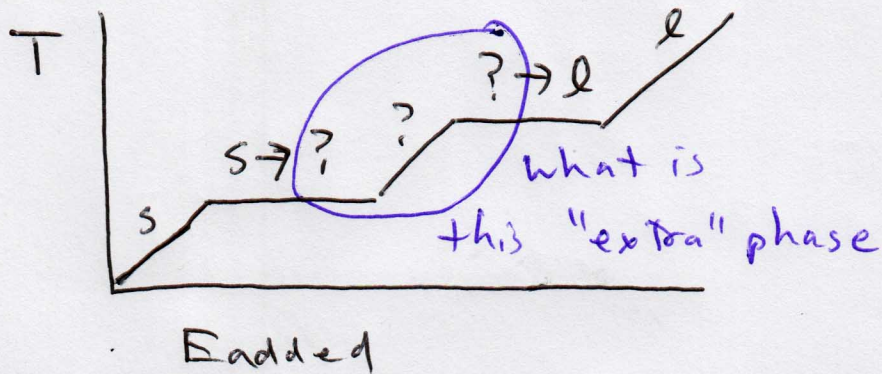 T
l
? → l
?
s → ?
s
what is
this "extra" phase
Eadded